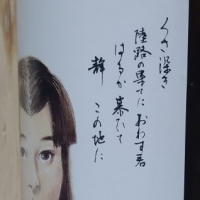 くさ深き
陸路の果てに おわす君
はるか慕ひて
この地に
静